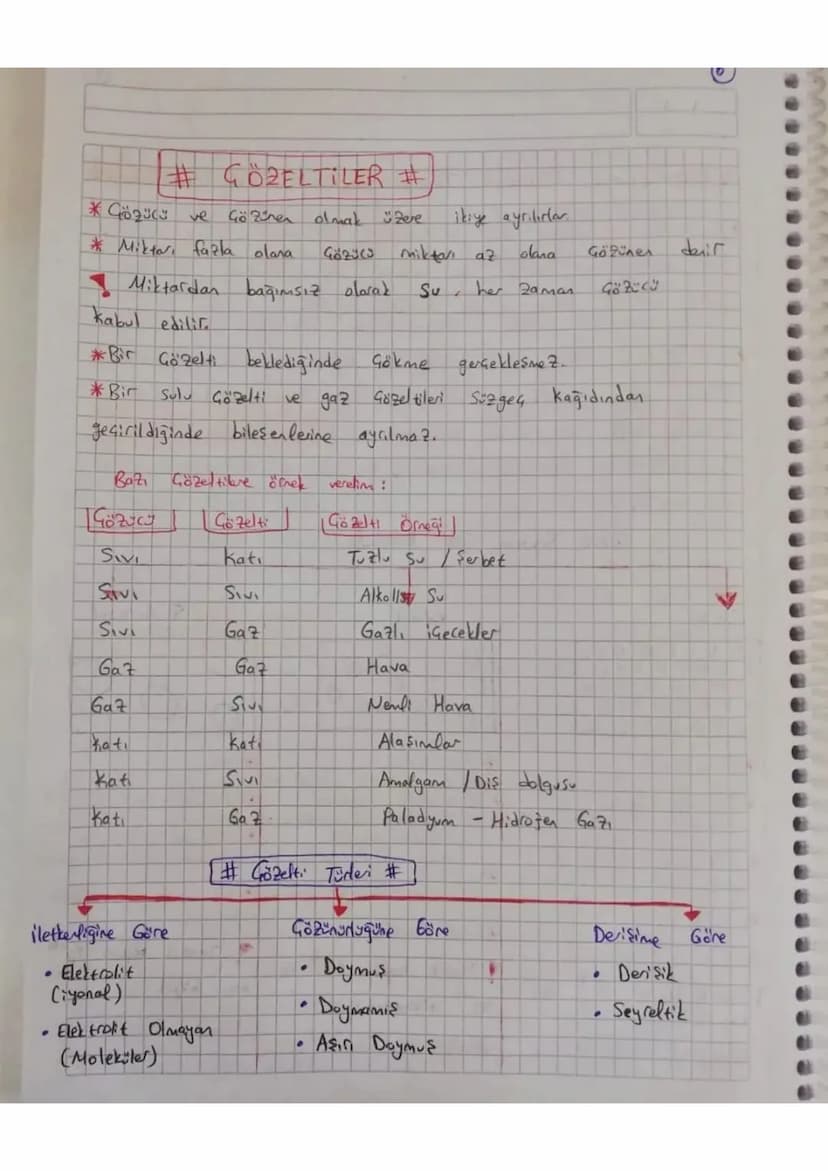 # ÇÖZELTİLER #
* Çözücü ve Çözünen olmak üzere ikiye ayrılırlar.
* Miktarı fazla olana Çözücü miktarı az olana Çözünen denir
! Miktardan bağımsız olarak Su, her zaman Çözücü
kabul edilir.
* Bir Çözelti beklediğinde Çökme gerçekleşmez.
* Bir sulu Çözelti ve gaz Çözeltileri Süzgeç Kağıdından
geçirildiğinde bileşenlerine ayrılmaz.
Bazı Çözeltilere örnek verelim:
Çözücü Çözelti Çözelti Örneği
Sıvı Katı Tuzlu Su / Şerbet
Sıvı Sıvı Alkollü Su
Sıvı Gaz Gazlı içecekler
Gaz Gaz Hava
Gaz Sıvı Nemli Hava
Katı Katı Alaşımlar
Katı Sıvı Amalgam / Diş dolgusu
Katı Gaz Paladyum - Hidrojen Gazı
# Çözelti Türleri #
iletkenliğine Göre Çözünürlüğüne Göre Derişime Göre
• Elektrolit • Doymuş • Derişik
(iyonal) • Doymamış • Seyreltik
• Elektrolit Olmayan • Aşırı Doymuş
(Moleküler)